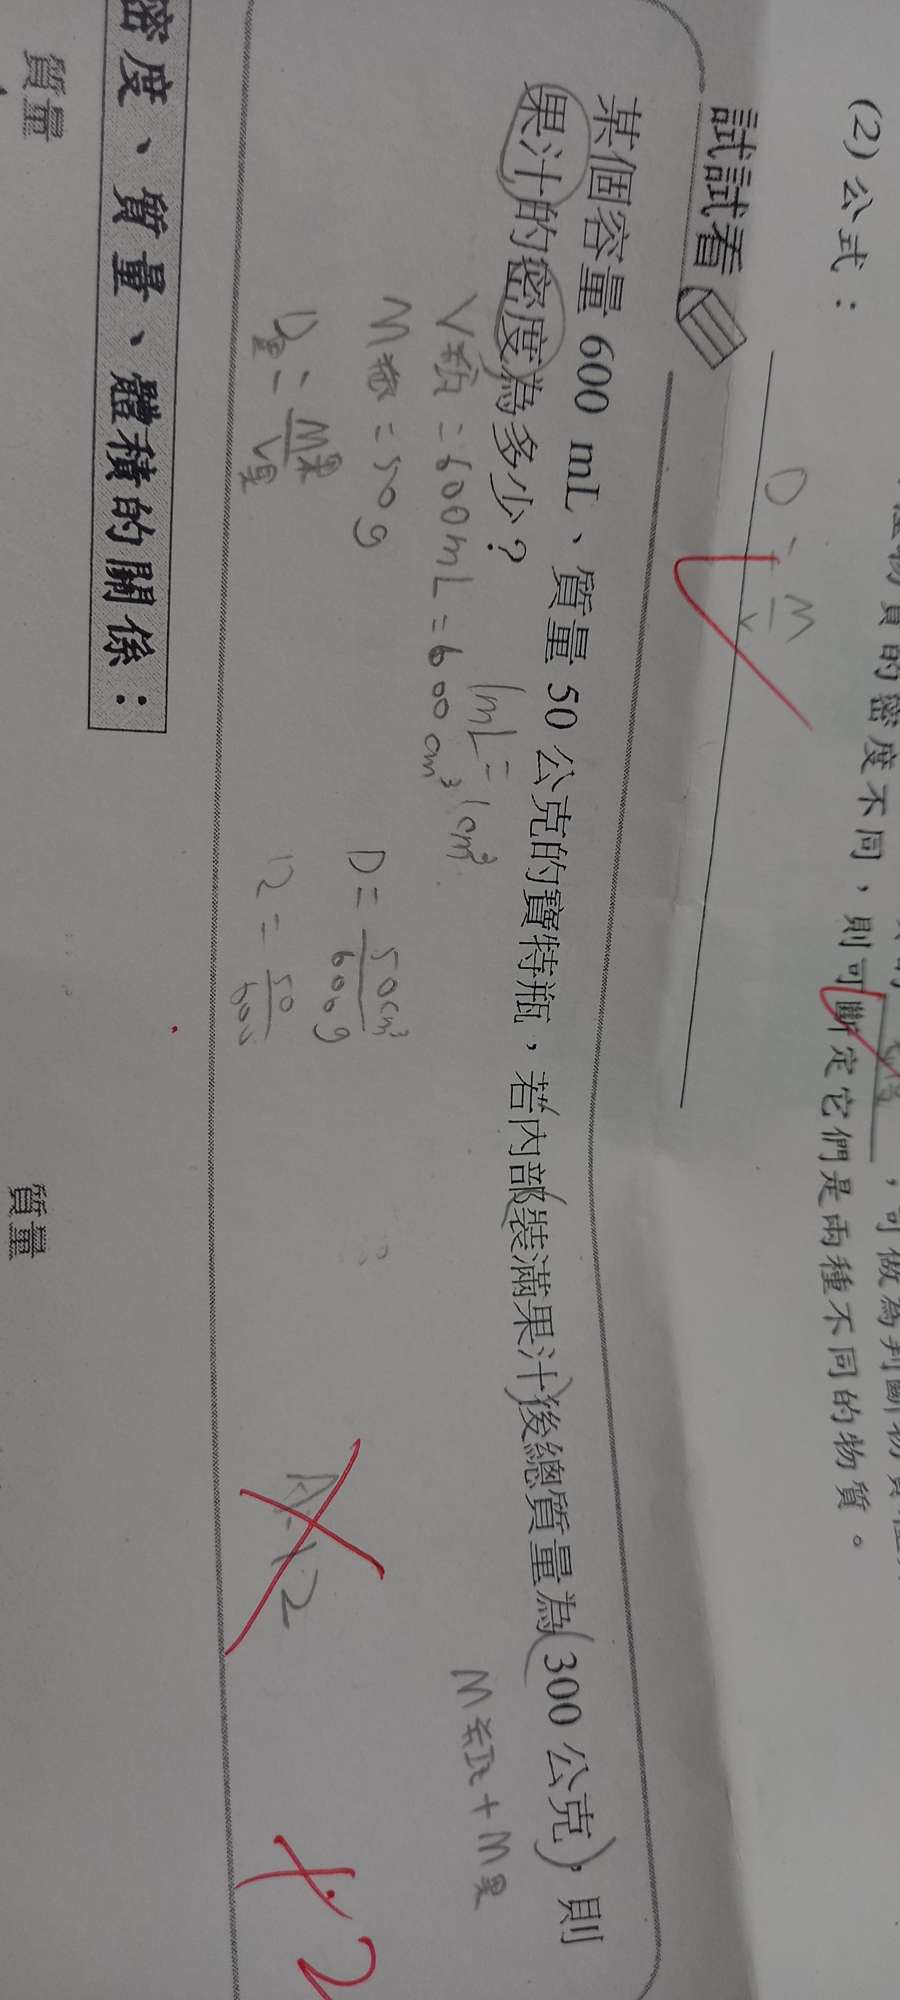 (2)公式：
D = M/V
種物質的密度不同，則可斷定它們是兩種不同的物質。
，可做為判斷物質種
試試看
某個容量 600 mL、質量 50 公克的寶特瓶，若內部裝滿果汁後總質量為 300 公克，則
果汁的密度為多少？
1mL = 1cm³
M瓶 + M果
V瓶 = 600mL = 600cm³
M瓶 = 50g
D = 50cm³/600g
D果 = M果/V果
12 = 50/600
A:12
+2
密度、質量、體積的關係：
質量
質量